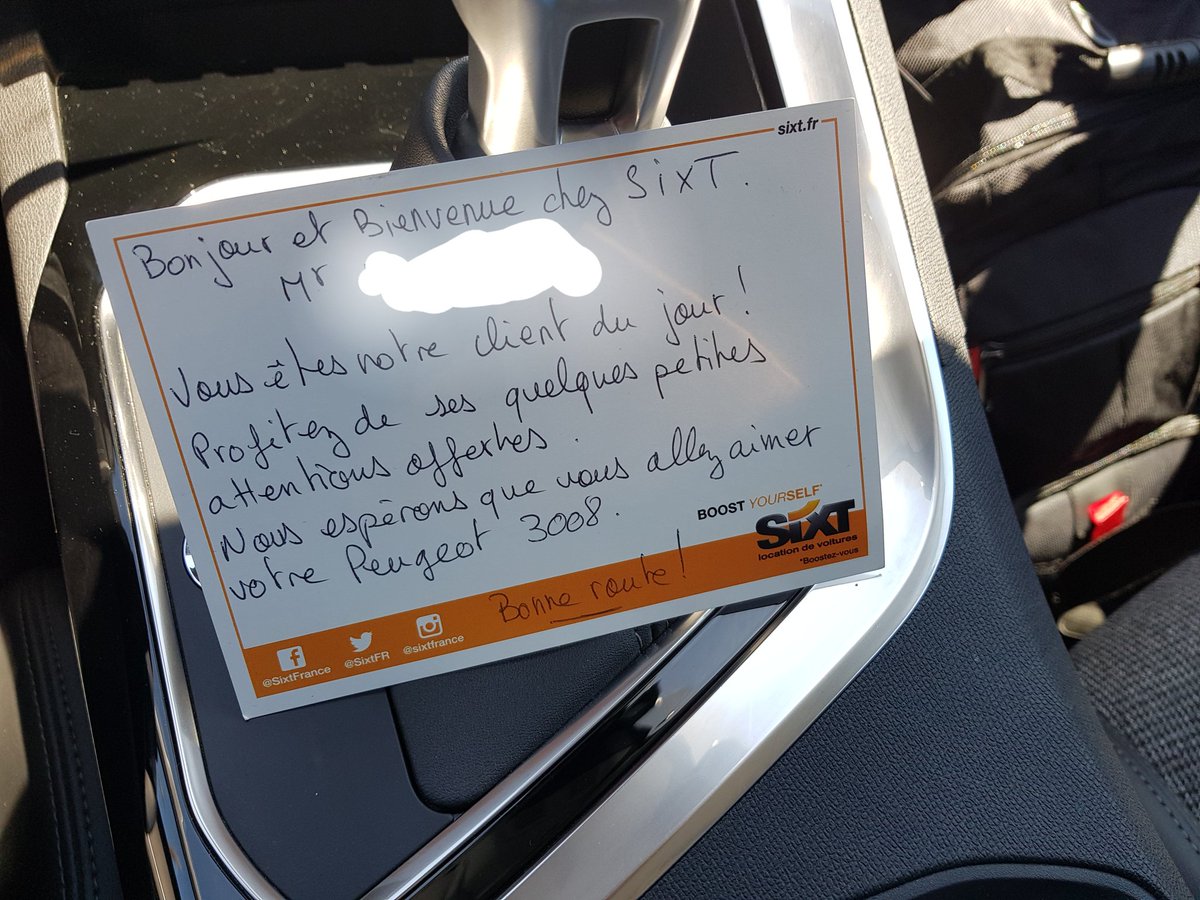 sixt.fr
Bonjour et Bienvenue chez SixT.
Mr
Vous êtes notre client du jour !
Profitez de ses quelques petites
attentions offertes.
Nous espérons que vous allez aimer
votre Peugeot 3008.
Bonne route !
BOOST YOURSELF*
SIXT
location de voitures
*Boostez-vous
@SixtFrance
@SixtFR
@sixtfrance